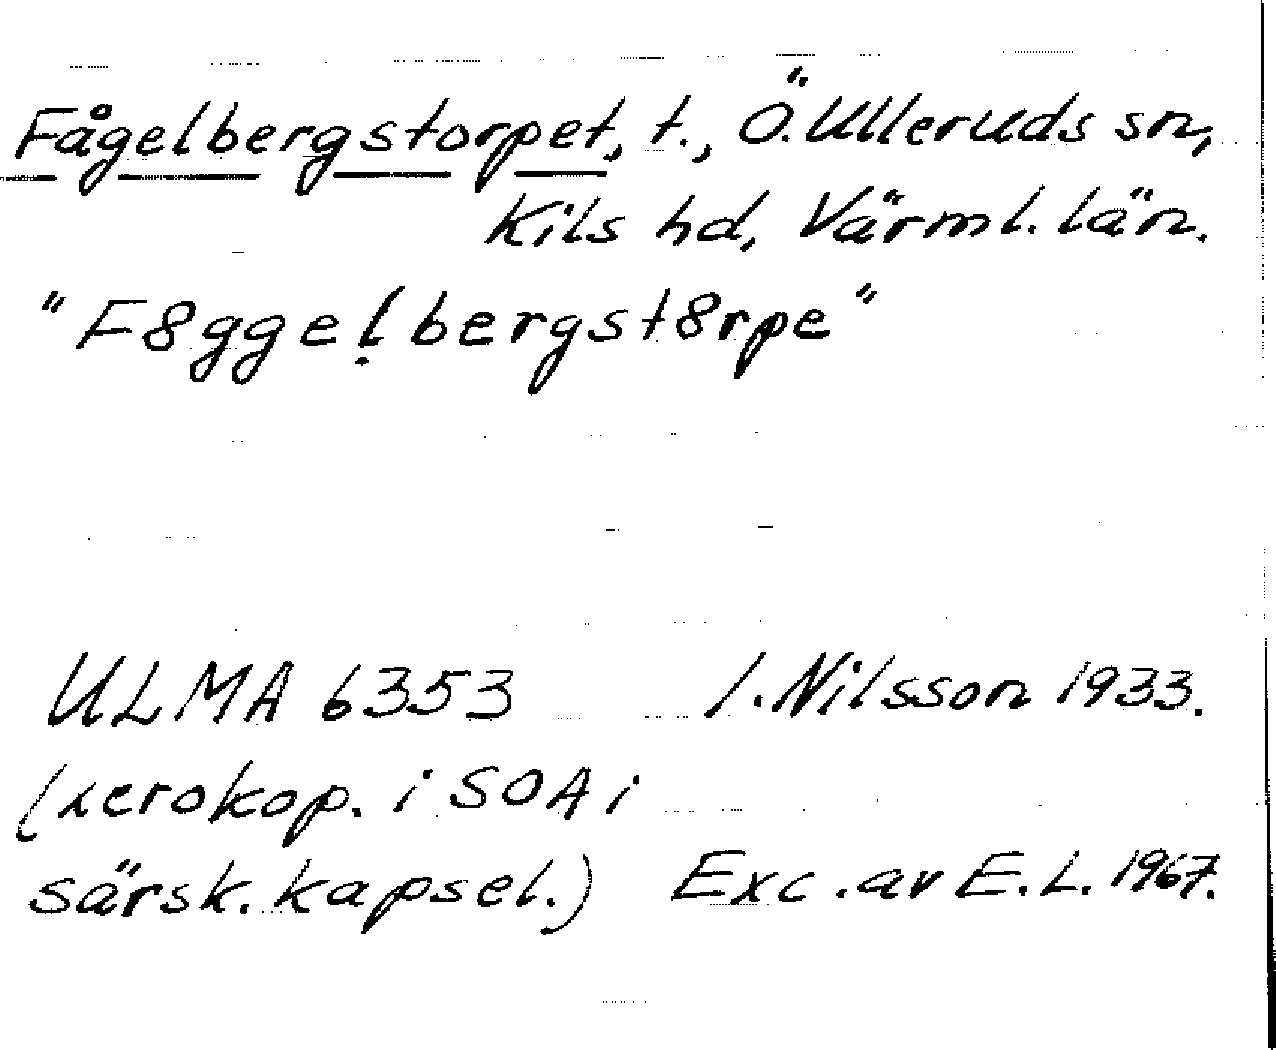 Fågelbergstorpet, t., Ö. Ulleruds sn,
Kils hd, Värml. län.
"F8ggeḷbergst8rpe"
ULMA 6353 I. Nilsson 1933.
(xerokop. i SOA i
särsk. kapsel.) Exc. av E. L. 1967.